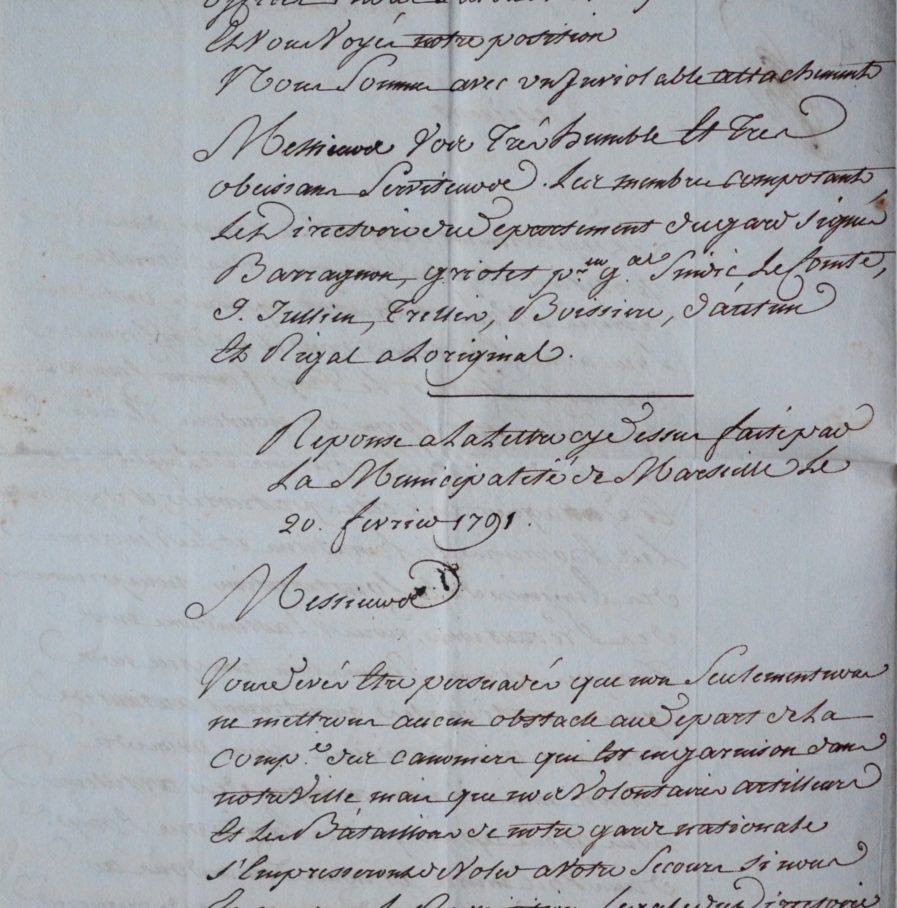 Et Vous Voyés notre position
Nous Somme avec un Inviolable attachement
Messieurs Votre Trés humble Et Tres
obeissans Serviteurs. Les membres composants
Le Directoire du departement du gard signés
Barragnon, griolet p.reur g.al Sindic, Le Comte,
P. Jullien, Trelis, Boissiere, d'autun
Et Rigal a Loriginal.
Reponse a La Lettre cy dessus faite par
La Municipalité de Marseille Le
20. fevrier 1791.
Messieurs
Vous devés Etre persuadés que non Seulement nous
ne mettrons aucun obstacle au depart de La
Comp.e des canoniers qui Est en garnison dans
notre Ville mais que nos Volontaires artilleurs
Et Les Bataillons de notre garde nationale
s'Empresseront de Voler a Votre Secours si nous